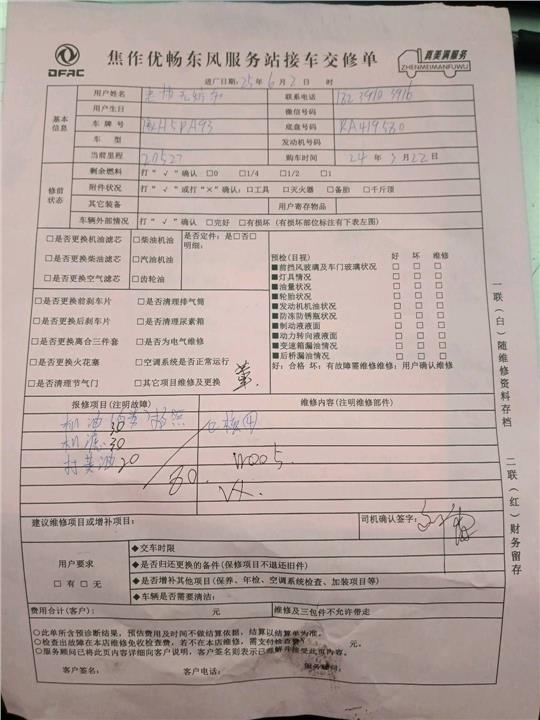 DFAC
焦作优畅东风服务站接车交修单
真美满服务
ZHENMEIMANFUWU
进厂日期：25年6月2日 时
基本信息
用户姓名 联系电话
用户生日 微信号码
车牌号 底盘号码 RA419580
车型 发动机号码
当前里程 20527 购车时间 24年 月22日
修前状态
剩余燃料 打“√”确认 □0 □1/4 □1/2 □1
附件状况 打“√”或打“×”确认：□工具 □灭火器 □备胎 □千斤顶
其它装备 用户寄存物品
车辆外部情况 打“√”确认 □完好 □有损坏（有损坏部位标注有下表左图）
□是否更换机油滤芯 □柴油机油 是否定件：是□否□
明细：
□是否更换柴油滤芯 □汽油机油
□是否更换空气滤芯 □齿轮油
□是否更换前刹车片 □是否清理排气筒
□是否更换后刹车片 □是否清理尿素箱
□是否更换离合三件套 □是否为电气维修
□是否更换火花塞 □空调系统是否正常运行
□是否清理节气门 □其它项目维修及更换
预检(目视) 好 坏 维修
■前挡风玻璃及车门玻璃状况 □ □ □
■灯具情况 □ □ □
■油量状况 □ □ □
■轮胎状况 □ □ □
■发动机机油状况 □ □ □
■防冻防锈瓶状况 □ □ □
■制动液液面 □ □ □
■动力转向液液面 □ □ □
■变速箱漏油情况 □ □ □
■后桥漏油情况 □ □ □
好：合格 坏：有故障需维修维修：用户确认维修
报修项目（注明故障） 维修内容(注明维修部件)
机油 30
机滤 30
打黄油 20
80
建议维修项目或增补项目： 司机确认签字：
用户要求
□有 □无
◆交车时限
◆是否归还更换的备件(保修项目不退还旧件)
◆是否增补其他项目(保养、年检、空调系统检查、加装项目等)
◆车辆是否需要清洁：
费用合计(客户)： 元 维修及三包件不允许带走
○此单所含预诊断结果，预估费用及时间不做结算依据，结算以结算单为准。
○检查出故障在本店维修免收检查费，若不在本店维修，需支付检查费 元。
○服务顾问已将此页内容详细向客户说明，客户签名则表示已理解并接受此页内容。
客户签名： 客户电话： 服务顾问：
一联（白）随维修资料存档
二联（红）财务留存